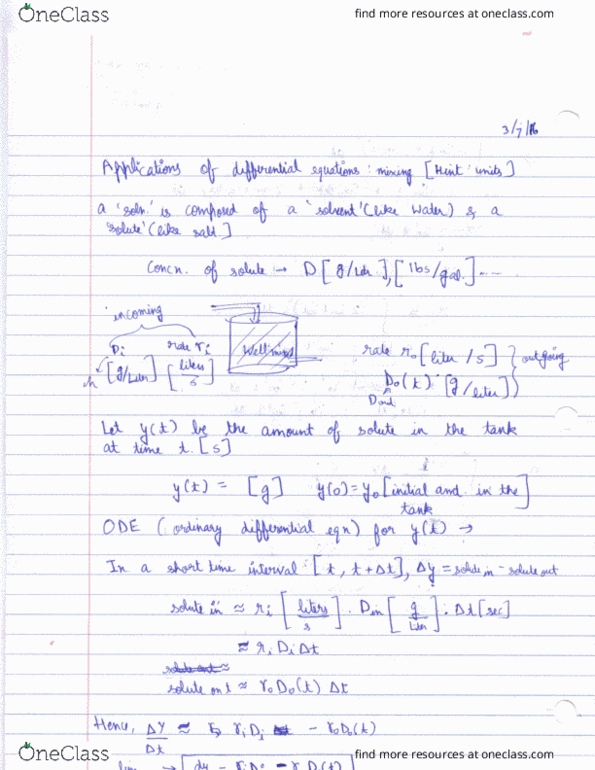 OneClass
find more resources at oneclass.com
3/7/16
Applications of differential equations : mixing [Hint : units]
a 'soln.' is composed of a 'solvent' (like water) & a
'solute' (like salt]
Concn. of solute → D [g/Liter.], [lbs/gal.] ....
incoming
Di rate ri
in [g/Liter] [liters/s]
Well mixed
rate ro [liter/s]
Do(t) [g/liter]
outgoing
Dout
Let y(t) be the amount of solute in the tank
at time t. [s]
y(t) = [g] y(0) = yo [initial amt. in the
tank]
ODE (ordinary differential eqn) for y(t) →
In a short time interval : [t, t+Δt], Δy = solute in - solute out
solute in ≈ ri [liters/s] . Din [g/Liter] . Δt [sec]
≈ ri Di Δt
solute out ≈
solute out ≈ ro Do(t) Δt
Hence, ΔY/Δt ≈ ri Di - ro Do(t)
OneClass
find more resources at oneclass.com